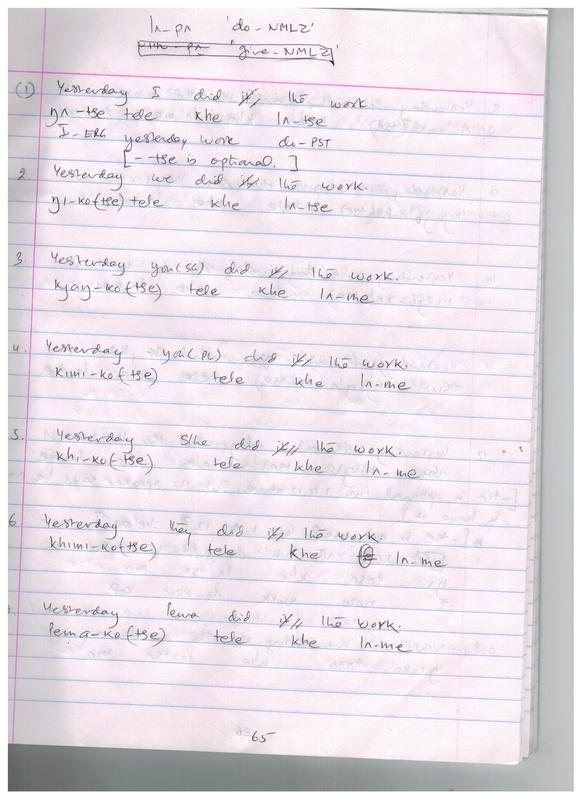 lʌ-pʌ 'do-NMLZ'
'give-NMLZ'
(1) Yesterday I did the work.
ŋʌ-tse tele khe lʌ-tse
I-ERG yesterday work do-PST
[-tse is optional.]
2. Yesterday we did the work.
ŋi-ko(tse) tele khe lʌ-tse
3. Yesterday you(SG) did the work.
kyaŋ-ko(tse) tele khe lʌ-me
4. Yesterday you(PL) did the work.
kimi-ko(tse) tele khe lʌ-me
5. Yesterday S/he did the work.
khi-ko(tse) tele khe lʌ-me
6. Yesterday they did the work.
khimi-ko(tse) tele khe lʌ-me
Yesterday pema did the work.
pema-ko(tse) tele khe lʌ-me
65